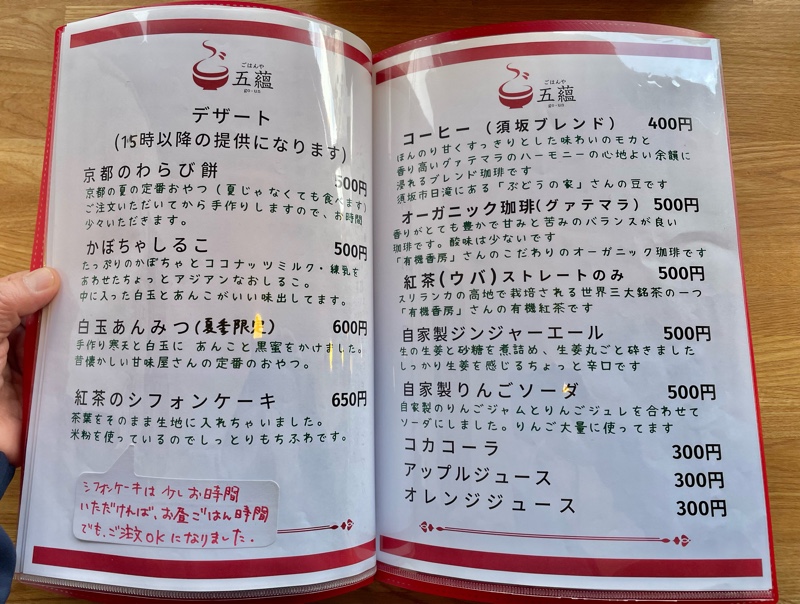 ごはんや
五蘊
go-un
デザート
(15時以降の提供になります)
京都のわらび餅 500円
京都の夏の定番おやつ(夏じゃなくても食べます)
ご注文いただいてから手作りしますので、お時間
少々いただきます。
かぼちゃしるこ 500円
たっぷりのかぼちゃとココナッツミルク・練乳を
あわせたちょっとアジアンなおしるこ。
中に入った白玉とあんこがいい味出してます。
白玉あんみつ(夏季限定) 600円
手作り寒天と白玉に あんこと黒蜜をかけました。
昔懐かしい甘味屋さんの定番のおやつ。
紅茶のシフォンケーキ 650円
茶葉をそのまま生地に入れちゃいました。
米粉を使っているのでしっとりもちふわです。
シフォンケーキは少しお時間
いただければ、お昼ごはん時間
でも、ご注文OKになりました.
ごはんや
五蘊
go-un
コーヒー(須坂ブレンド) 400円
ほんのり甘くすっきりとした味わいのモカと
香り高いグァテマラのハーモニーの心地よい余韻に
浸れるブレンド珈琲です
須坂市日滝にある「ぶどうの家」さんの豆です
オーガニック珈琲(グァテマラ) 450円
香りがとても豊かで甘みと苦みのバランスが良い
珈琲です。酸味は少ないです
「有機香房」さんのこだわりのオーガニック珈琲です
紅茶(ウバ)ストレートのみ 500円
スリランカの高地で栽培される世界三大銘茶の一つ
「有機香房」さんの有機紅茶です
自家製ジンジャーエール 500円
生の生姜と砂糖を煮詰め、生姜丸ごと砕きました
しっかり生姜を感じるちょっと辛口です
自家製りんごソーダ 500円
自家製のりんごジャムとりんごジュレを合わせて
ソーダにしました。りんご大量に使ってます
コカコーラ 300円
アップルジュース 300円
オレンジジュース 300円